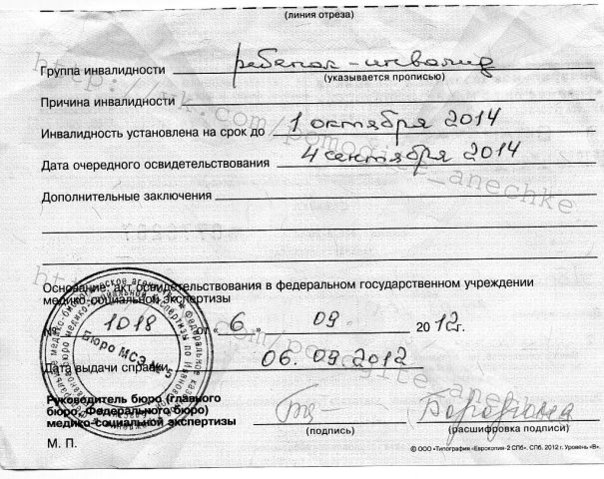 (линия отреза)
Группа инвалидности ребенок-инвалид
(указывается прописью)
Причина инвалидности
Инвалидность установлена на срок до 1 октября 2014
Дата очередного освидетельствования 4 сентября 2014
Дополнительные заключения
http://vk.com/pomogite_anechke
Основание: акт освидетельствования в федеральном государственном учреждении
медико-социальной экспертизы
№ 1018 от « 6 » 09. 2012г.
Бюро МСЭ № 5
Дата выдачи справки 06.09.2012
Руководитель бюро (главного
бюро, Федерального бюро)
медико-социальной экспертизы
(подпись) (расшифровка подписи)
М. П.
© ООО «Типография «Еврокопия-2 СПб». СПб. 2012 г. Уровень «В».